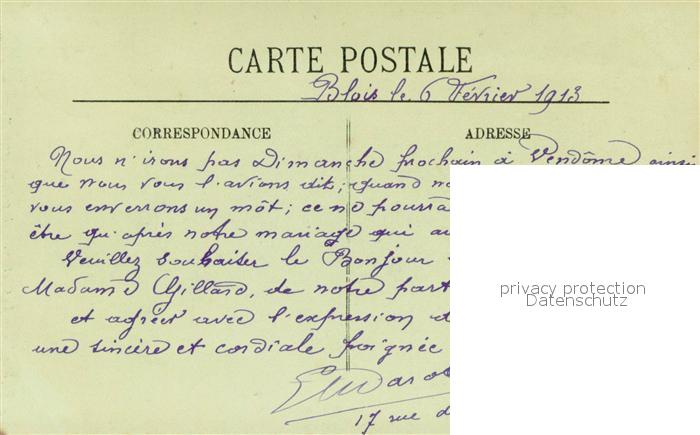 CARTE POSTALE
Blois le 6 Février 1913
CORRESPONDANCE
ADRESSE
Nous n'irons pas Dimanche prochain à Vendôme ainsi
que nous vous l'avions dit; quand
vous enverrons un môt; ce ne
être qu'après notre mariage qui
Veuillez souhaiter le Bonjour
Madame Gillard, de notre part
et agréer avec l'expression
une sincère et cordiale poignée
17 rue
privacy protection
Datenschutz